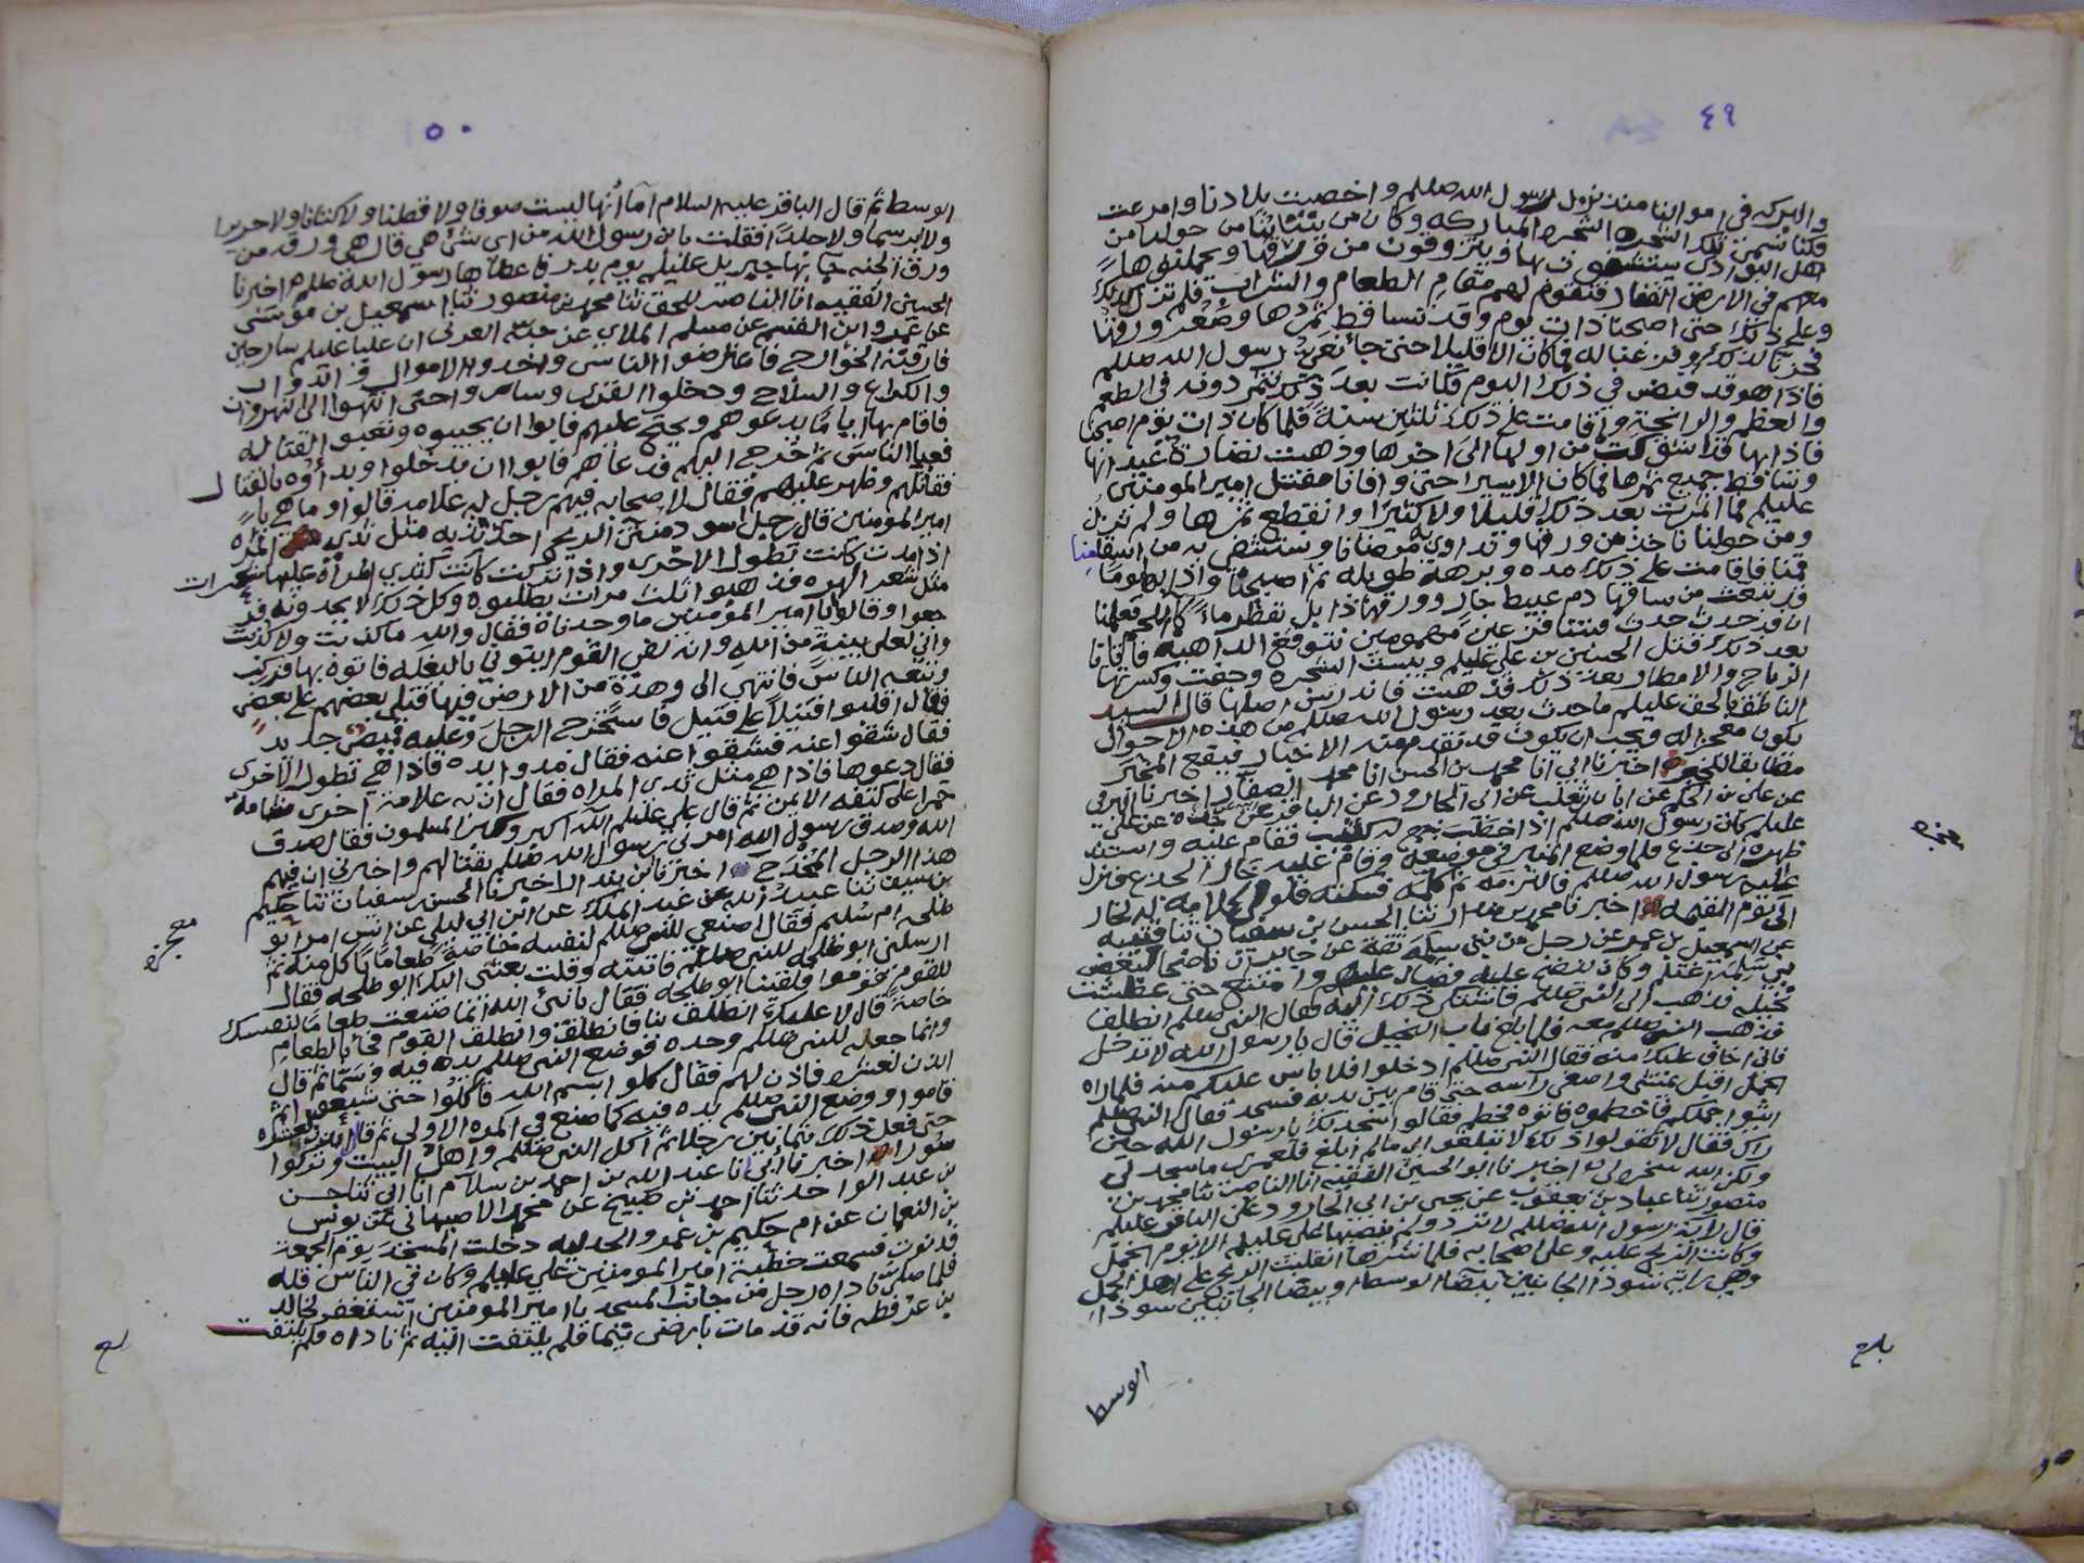 ٤٩
والبركه في اموالنا منذ نزول رسول الله صللم واخصبت بلادنا وامرعت
فكنا نسمى تلك الشجره الشجره المباركه وكان من ينتابنا من حولنا من
اهل البوادي يستشفون بها ويتزودون من ورقها ويحملونها
معهم في الارض القفار فتقوم لهم مقام الطعام والشراب فلم تزل كذلك
وعلى ذلك حتى اصبحنا ذات يوم وقد تساقط ثمرها وصغر ورقها
فحزنا لذلك وفزعنا له فما كان الا قليلا حتى جا نعي رسول الله صللم
فاذا هو قد قبض في ذلك اليوم فكانت بعد ذلك تثمر دونه في الطعم
والعظم والرائحة واقامت على ذلك ثلثين سنة فلما كان ذات يوم اصبحنا
فاذا بها قد اشوكت من اولها الى اخرها وذهبت نضارة عيدانها
وتساقط جميع ثمرها فما كان الا يسيرا حتى وافانا مقتل امير المومنين
عليلم فما اثمرت بعد ذلك قليلا ولا كثيرا وانقطع ثمرها ولم نزل
ومن حولنا ناخذ من ورقها ونداوي به مرضانا ونستشفي به من اسقامنا
فاقامت على ذلك مده وبرهة طويله ثم اصبحنا واذا بها يوما
قد نبعت من ساقها دم عبيط جار وورقها ذابل تقطر ماء كماء اللحم فعلمنا
ان قد حدث حدث فبتنا فزعين مهمومين نتوقع الداهيه فاتانا
بعد ذلك قتل الحسين بن علي عليلم ويبست الشجره وجفت وكسرتها
الرياح والامطار بعد ذلك فذهبت فاندرس اصلها قال السيد
الناطق بالحق عليلم ما حدث بعد رسول الله صللم من هذه الاحوال
يكون معجزا له ويجب ان يكون قد تقدم منه الاخبار فيقع المخبر
مطابقا للخبر اخبرنا ابي انا محمد بن الحسن انا محمد الصفار اخبرنا البرقي
عن علي بن الحكم عن ابان بن تغلب عن ابي الجارود عن الباقر عن جده عن علي
عليلم كان رسول الله صللم اذا خطب فقام عليه واستند
ظهره الى جذع فلما وضع المنبر في موضعه وقام عليه خار الجذع فنزل
اليه رسول الله صللم فالتزمه ثم كلمه فسكن فلولا كلامه له لخار
الى يوم القيمه اخبرنا محمد بن بندار ثنا الحسن بن سفيان ثنا قتيبه
عن اسمعيل بن عن رجل من بني سلمة ثقة عن جابر ان ناضحا لبعض
بني سلمة اغتلم وكان ينضح عليه فصال عليهم وامتنع حتى عطشت
نخيله فذهب الى النبي صللم فاشتكى ذلك اليه فقال النبي صللم انطلق
فذهب النبي صللم معه فلما بلغ باب النخيل قال يا رسول الله لا تدخل
فاني اخاف عليك منه فقال النبي صللم ادخلوا فلا باس عليكم منه فلما راه
الجمل اقبل يمشي واضعا راسه حتى قام بين يديه فسجد فقال النبي صللم
ايتوا جملكم فاخطموه فاتوه فخطم فقالوا سجد لك يا رسول الله حين
راك فقال لا تقولوا ذلك لا تبلغوا بي ما لم ابلغ فلعمري ما سجد لي
ولكن الله سخره لي اخبرنا ابو الحسين الفقيه انا الناصر ثنا محمد بن
منصور ثنا عباد بن يعقوب عن يحيى بن ابي الجارود عن الباقر عليلم
قال راية رسول الله صللم لا ترد ولم ينصبها علي عليلم الا يوم الجمل
وكانت الريح عليه وعلى اصحابه فلما نشرها انقلبت الريح على اهل الجمل
وهي راية سودا الجانبين بيضا الوسط او بيضا الجانبين سودا
معجزه
بلغ
الوسط
٥٠
الوسط ثم قال الباقر عليه السلام اما انها ليست صوفا ولا قطنا ولا كتانا ولا حريرا
ولا ابريسما ولا جلدا فقلت يابن رسول الله من اي شئ هي قال هي ورقه من
ورق الجنه جا بها جبريل عليلم يوم بدر فاعطاها رسول الله صللم اخبرنا
الحسين الفقيه انا الناصر للحق ثنا محمد بن منصور ثنا اسمعيل بن موسى
عن عمرو ابن القسم عن مسلم الملاي عن حبة العرني ان عليا عليلم سار حين
فارقته الخوارج فاعترضوا الناس واخذوا الاموال والدواب
والكراع والسلاح ودخلوا القرى وساروا حتى انتهوا الى النهروان
فاقام بها اياما يدعوهم ويحتج عليهم فابوا ان يجيبوه وتعبوا لقتاله
فعبا الناس ثم خرج اليهم فدعاهم فابوا ان يدخلوا وبداوه بالقتال
فقاتلهم وظهر عليهم فقال لاصحابه فيهم رجل له علامه قالوا وما هي يا
امير المومنين قال رجل اسود منتن الريح احد ثدييه مثل ثدي المراه
اذا مدت كانت تطول الاخرى واذا تركت كانت كثدي المراه عليها شعرات
مثل شعر الهره فذهبوا ثلث مرات يطلبوه وكل ذلك لا يجدونه فر
جعوا وقالوا يا امير المؤمنين ما وجدناه فقال والله ما كذبت ولا كذبت
واني لعلى بينة من الله وانه لفي القوم ايتوني بالبغله فاتوه بها فركب
وتبعه الناس فانتهى الى وهدة من الارض فيها قتلى بعضهم على بعض
فقال اقلبوا قتيلا على قتيل فاستخرج الرجل وعليه قميص جديد
فقال شقوا عنه فشقوا عنه فقال مدوا يده فاذا هي تطول الاخرى
فقال دعوها فاذا هي مثل ثدي المراه فقال ان به علامة اخرى شامة
حمرا على كتفه الايمن ثم قال علي عليلم الله اكبر وكبر المسلمون فقال صدق
الله وصدق رسول الله امرني رسول الله صللم بقتالهم واخبرني ان فيهم
هذا الرجل المخدج اخبرنا ابن بندار اخبرنا الحسن بن سفيان ثنا حكيم
بن سيف ثنا عبيد الله عن عبد الملك عن ابن ابي ليلى عن انس امر ابو
طلحه ام سليم فقال اصنعي للنبي صللم لنفسه خاصة طعاما ياكل منه ثم
ارسلني ابو طلحه للنبي صللم فاتيته وقلت بعثني اليك ابو طلحه فقال
للقوم قوموا فلقينا ابو طلحه فقال يا نبي الله انما صنعت طعاما لنفسك
خاصة قال لا عليك انطلق بنا فانطلق وانطلق القوم فجئ بالطعام
وانما جعله للنبي صللم وحده فوضع النبي صللم يده فيه وسما ثم قال
ائذن لعشره فاذن لهم فقال كلوا بسم الله فاكلوا حتى شبعوا ثم
قاموا ووضع النبي صللم يده فيه كما صنع في المره الاولى ثم قال ائذن لعشره
حتى فعل ذلك بثمانين رجلا ثم اكل النبي صللم واهل البيت وتركوا
سورا اخبرنا ابي انا عبد الله بن احمد بن سلام انا ابي ثنا حسن
بن عبد الواحد ثنا احمد بن صبيح عن محمد الاصبهاني عن يونس
بن النعمان عن ام حكيم بن عمرو الجدليه دخلت المسجد يوم الجمعة
فدنوت فسمعت خطبة امير المومنين علي عليلم وكان في الناس قله
فلما ناداه رجل من جانب المسجد يا امير المومنين استغفر لخالد
بن عرفطه فانه قد مات بارض تيما فلم يلتفت اليه ثم ناداه فلم يلتفت
معجزه
بلغ